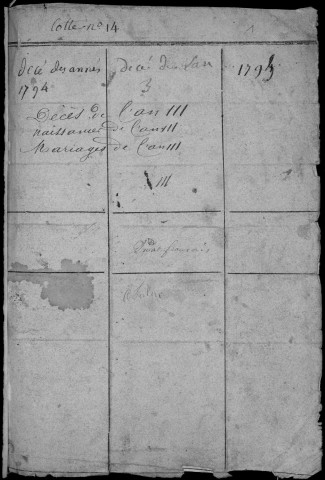 Cotte n° 14
1
Décé des années Decé de Lan 1795
1794 3
Décès de L'an III
naissances de L'an III
Mariages de L'an III
III